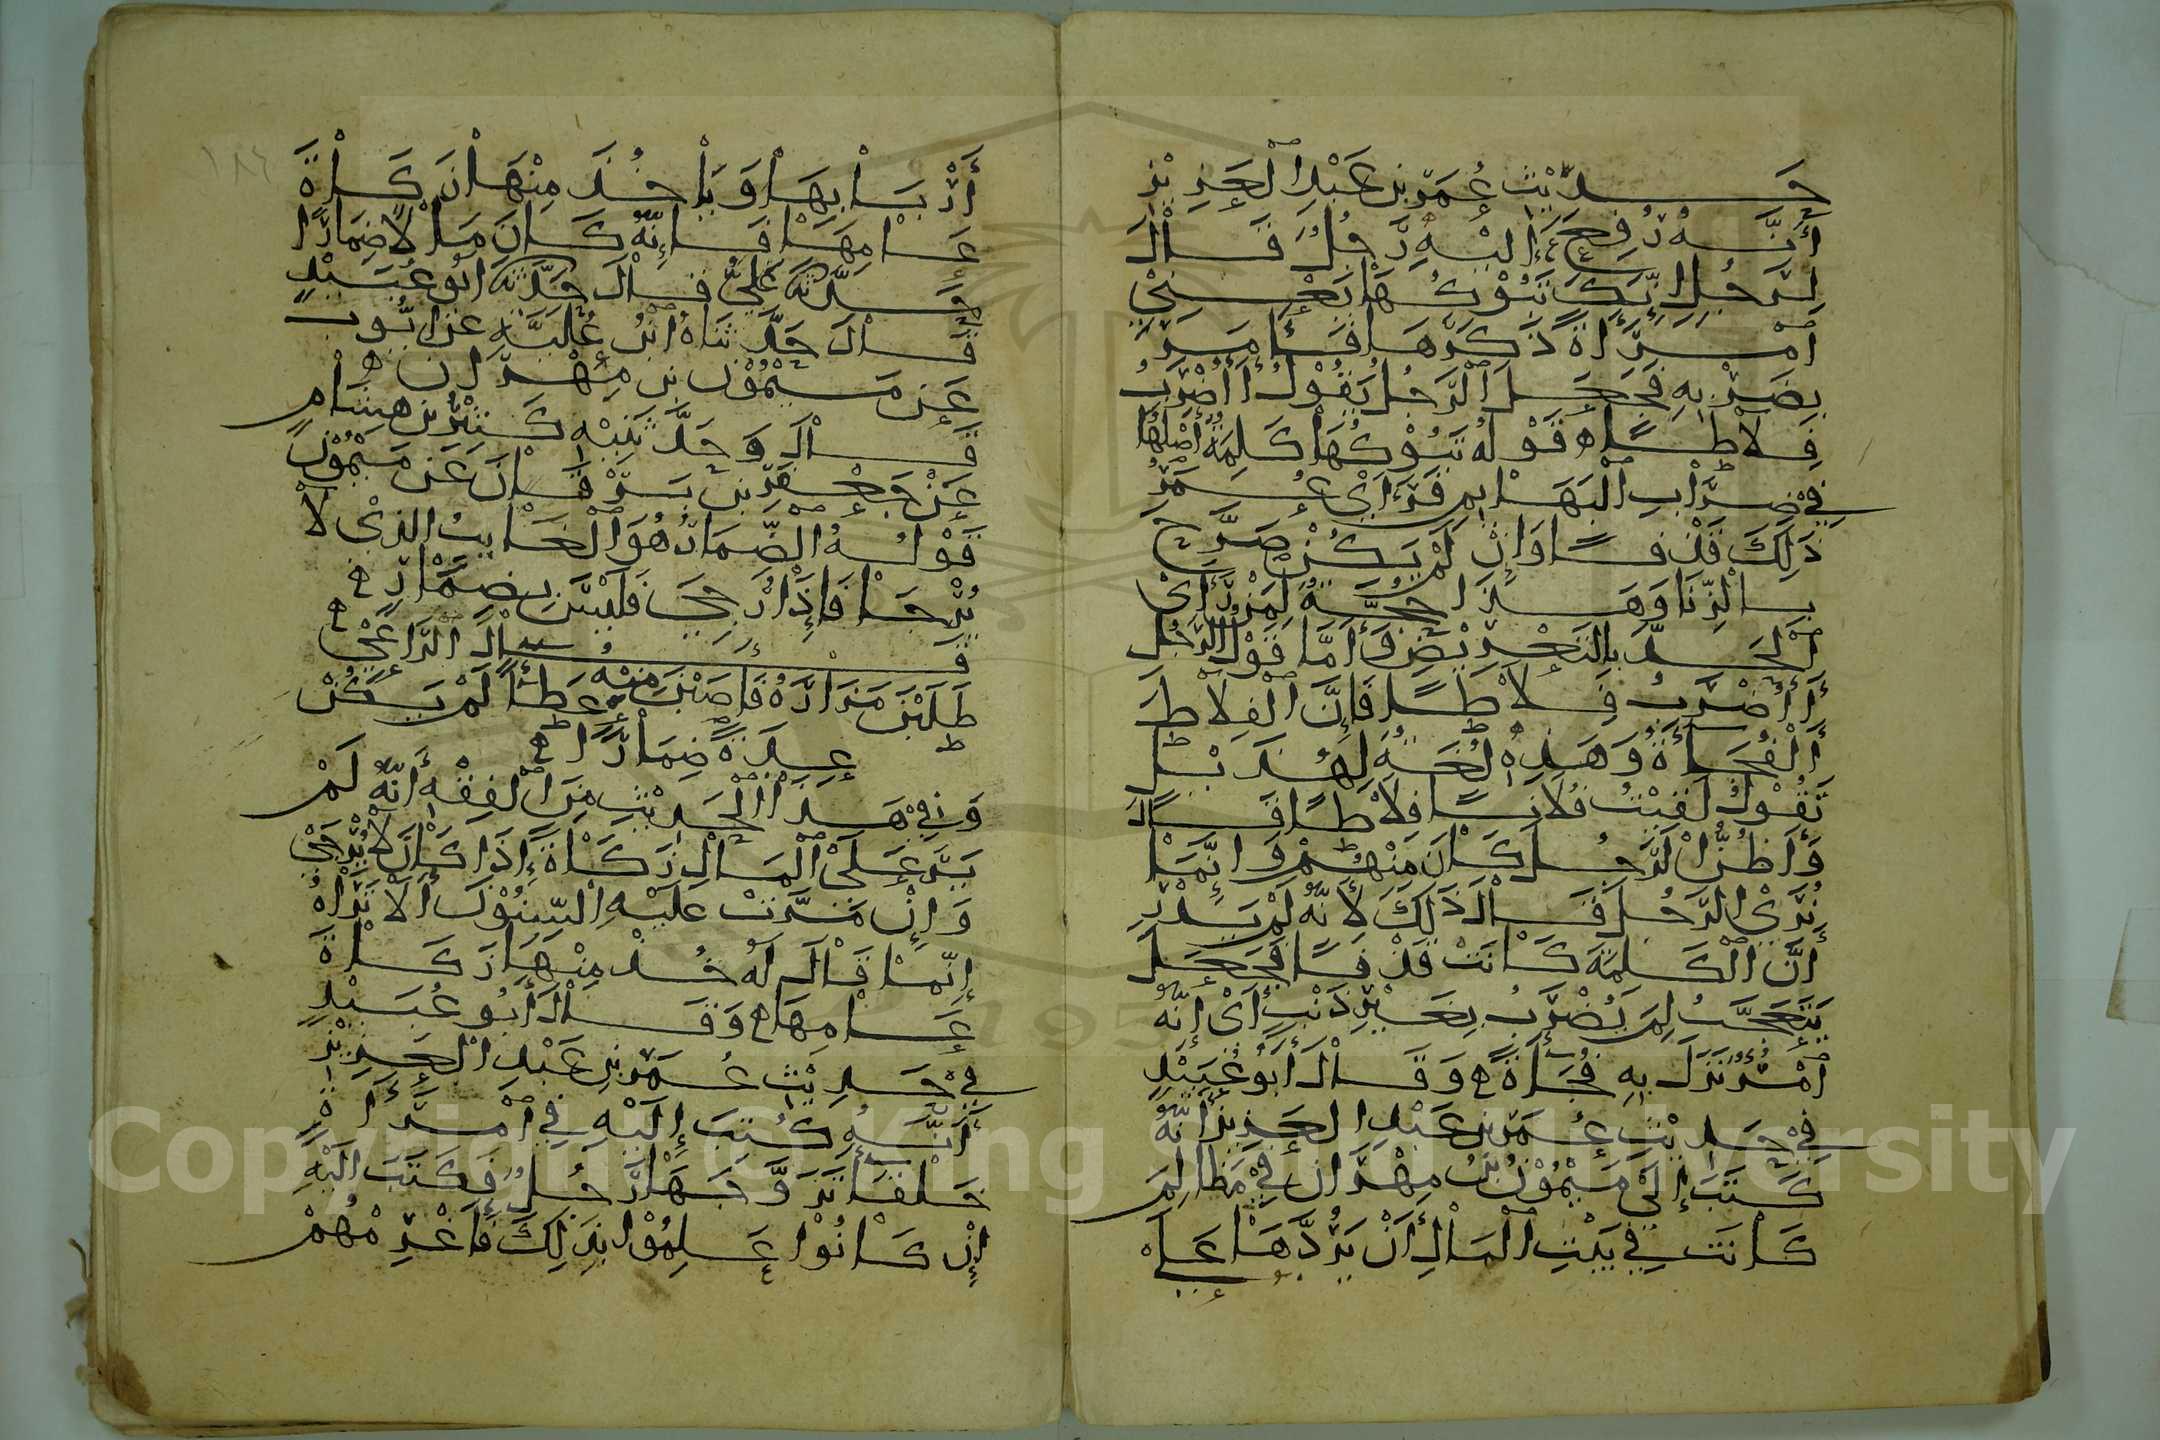 حَدِيْثِ عُمَرَ بْنِ عَبْدِ الْعَزِيْزِ
أَنَّهُ رُفِعَ إِلَيْهِ رَجُلٌ قَالَ
لِرَجُلٍ إِنَّكَ تَبُوْكُهَا يَعْنِيْ
امْرَأَةً ذَكَرَهَا فَأَمَرَ
بِضَرْبِهِ فَجَعَلَ الرَّجُلُ يَقُوْلُ أَأُضْرَبُ
فِلَاطًا ه قَوْلُهُ تَبُوْكُهَا كَلِمَةٌ أَصْلُهَا
فِيْ ضِرَابِ الْبَهَايِمِ فَرَأَىْ عُمَرُ
ذَلِكَ قَذْفًا وَإِنْ لَمْ يَكُنْ صَرَّحَ
بِالزِّنَا وَهَذَا حُجَّةٌ لِمَنْ رَأَىْ
الْحَدَّ بِالتَّعْرِيْضِ وَأَمَّا قَوْلُ الرَّجُلِ
أَأُضْرَبُ فِلَاطًا فَإِنَّ الْفِلَاطَ
الْفُجَأَةُ وَهَذِهِ لُغَةٌ لِهُذَيْلٍ
تَقُوْلُ لَقِيْتُ فُلَانًا فِلَاطًا قَالَ
وَأَظُنُّ الرَّجُلَ كَانَ مِنْهُمْ وَإِنَّمَا
نُرَىْ الرَّجُلَ قَالَ ذَلِكَ لِأَنَّهُ لَمْ يَدْرِ
أَنَّ الْكَلِمَةَ كَانَتْ قَذْفًا فَجَعَلَ
يَتَعَجَّبُ لِمَ يُضْرَبُ بِغَيْرِ ذَنْبٍ أَىْ إِنَّهُ
أَمْرٌ نَزَلَ بِهِ فُجَأَةً ه وَقَالَ أَبُو عُبَيْدٍ
فِيْ حَدِيْثِ عُمَرَ بْنِ عَبْدِ الْعَزِيْزِ أَنَّهُ
كَتَبَ إِلَىْ مَيْمُوْنِ بْنِ مِهْرَانَ فِيْ مَظَالِمَ
كَانَتْ فِيْ بَيْتِ الْمَالِ أَنْ يَرُدَّهَا عَلَى
أَرْبَابِهَا وَيَأْخُذَ مِنْهَا زَكَاةَ
عَامِهَا فَإِنَّهُ كَانَ مَالًا ضِمَارًا
حَدَّثَهُ عَلِيٌّ قَالَ حَدَّثَهُ أَبُو عُبَيْدٍ
قَالَ حَدَّثَنَاهُ ابْنُ عُلَيَّةَ عَنْ أَيُّوبَ
عَنْ مَيْمُوْنِ بْنِ مِهْرَانَ ه
قَالَ وَحَدَّثَنِيْهِ كَثِيْرُ بْنُ هِشَامٍ
عَنْ جَعْفَرِ بْنِ بَرْقَانَ عَنْ مَيْمُوْنٍ
قَوْلُهُ الضِّمَارُ هُوَ الْغَايِبُ الَّذِيْ لَا
يُرْجَا فَإِذَا رُجِيَ فَلَيْسَ بِضِمَارٍ ه
قَالَ الرَّاعِيْ ه
طَلَبْنَ مَزَارَهُ فَأَصَبْنَ مِنْهُ عَطَاءً لَمْ يَكُنْ
عِدَةً ضِمَارًا ه
وَفِيْ هَذَا الْحَدِيْثِ مِنَ الْفِقْهِ أَنَّهُ لَمْ
يَرَ عَلَىْ الْمَالِ زَكَاةً إِذَا كَانَ لَا يُرْجَىْ
وَإِنْ مَرَّتْ عَلَيْهِ السِّنُوْنَ أَلَا تَرَاهُ
إِنَّمَا قَالَ لَهُ خُذْ مِنْهَا زَكَاةَ
عَامِهَا ه وَقَالَ أَبُو عُبَيْدٍ
فِيْ حَدِيْثِ عُمَرَ بْنِ عَبْدِ الْعَزِيْزِ
أَنَّهُ كُتِبَ إِلَيْهِ فِي امْرَأَةٍ
خَلْقَاءَ تَزَوَّجَهَا رَجُلٌ فَكَتَبَ إِلَيْهِ
إِنْ كَانُوْا عَلِمُوْا بِذَلِكَ فَأَغْرِمْهُمْ
١٨٦
Copyright © King Saud University
1957